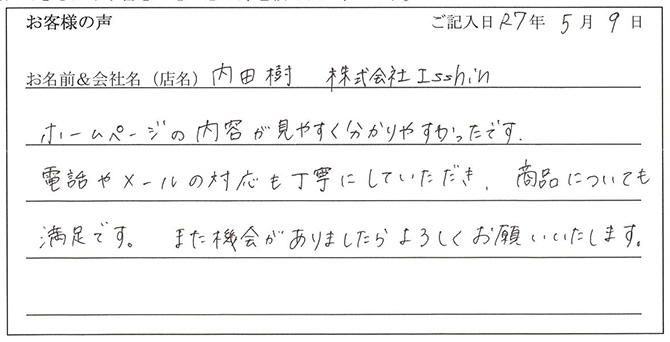 お客様の声 ご記入日 R7年 5月 9日
お名前&会社名(店名) 内田樹 株式会社Isshin
ホームページの内容が見やすく分かりやすかったです.
電話やメールの対応も丁寧にしていただき、商品についても
満足です。 また機会がありましたらよろしくお願いいたします。